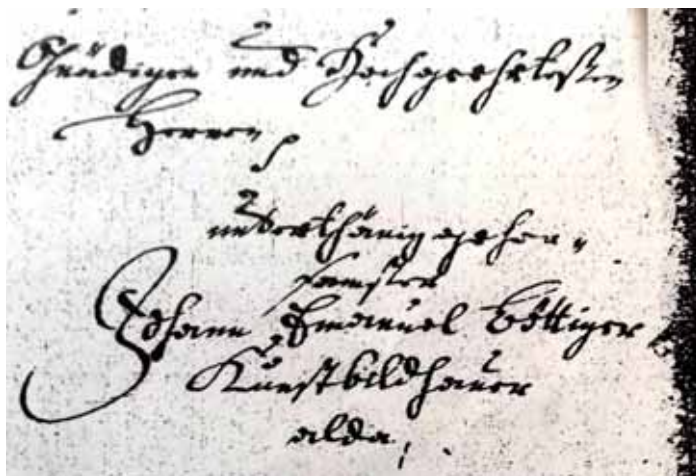 Gnädigen und Hochgeehrtesten
Herren,
unterthänig gehor-
samster
Johann Emanuel Böttiger
Kunstbildhauer
alda.